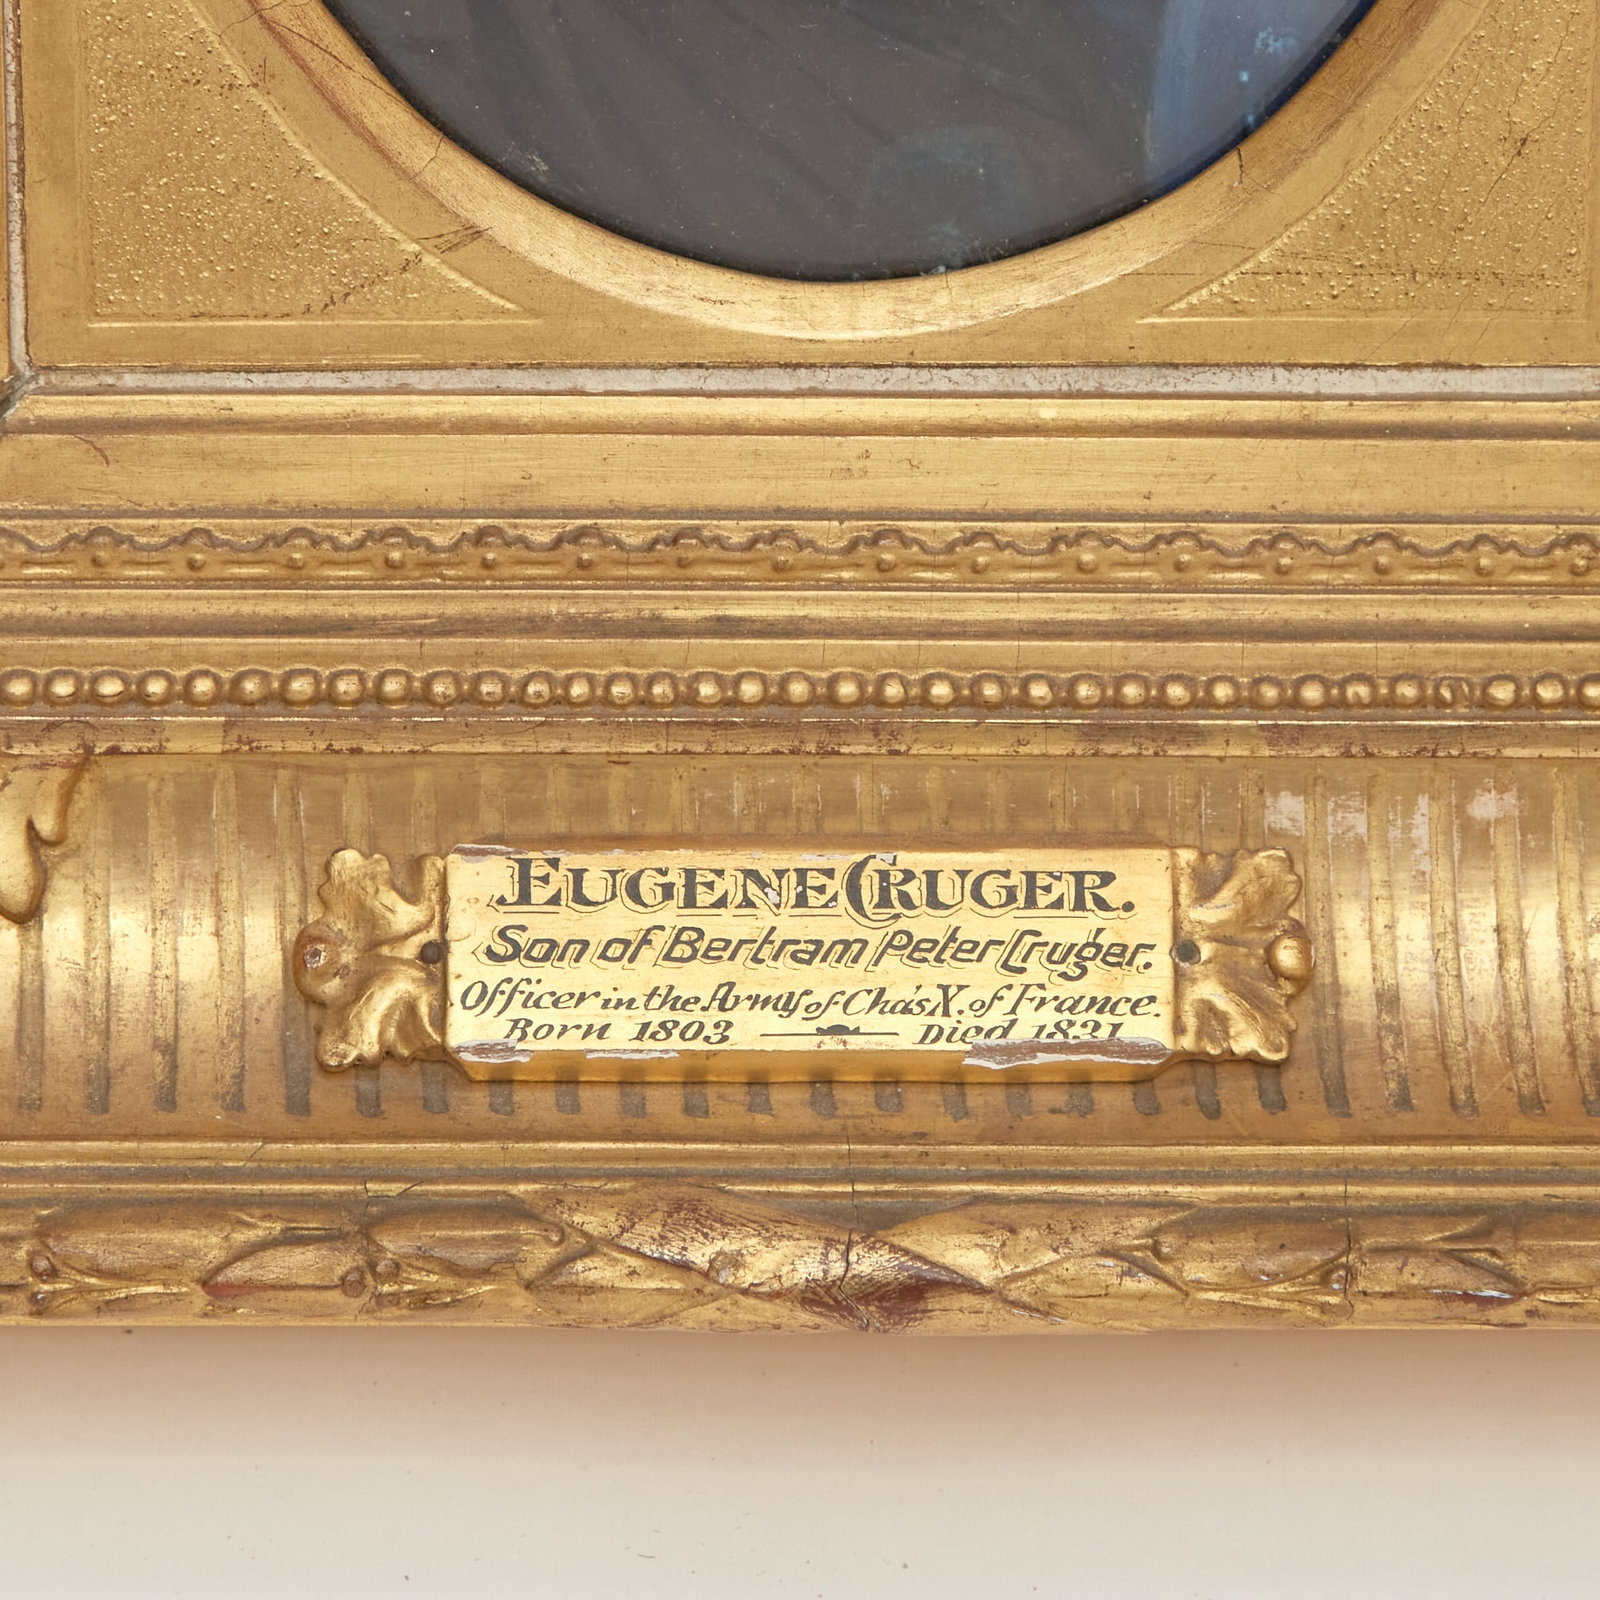 EUGENE CRUGER.
Son of Bertram Peter Cruger.
Officer in the Army of Cha's X. of France.
Born 1803 — Died 1831